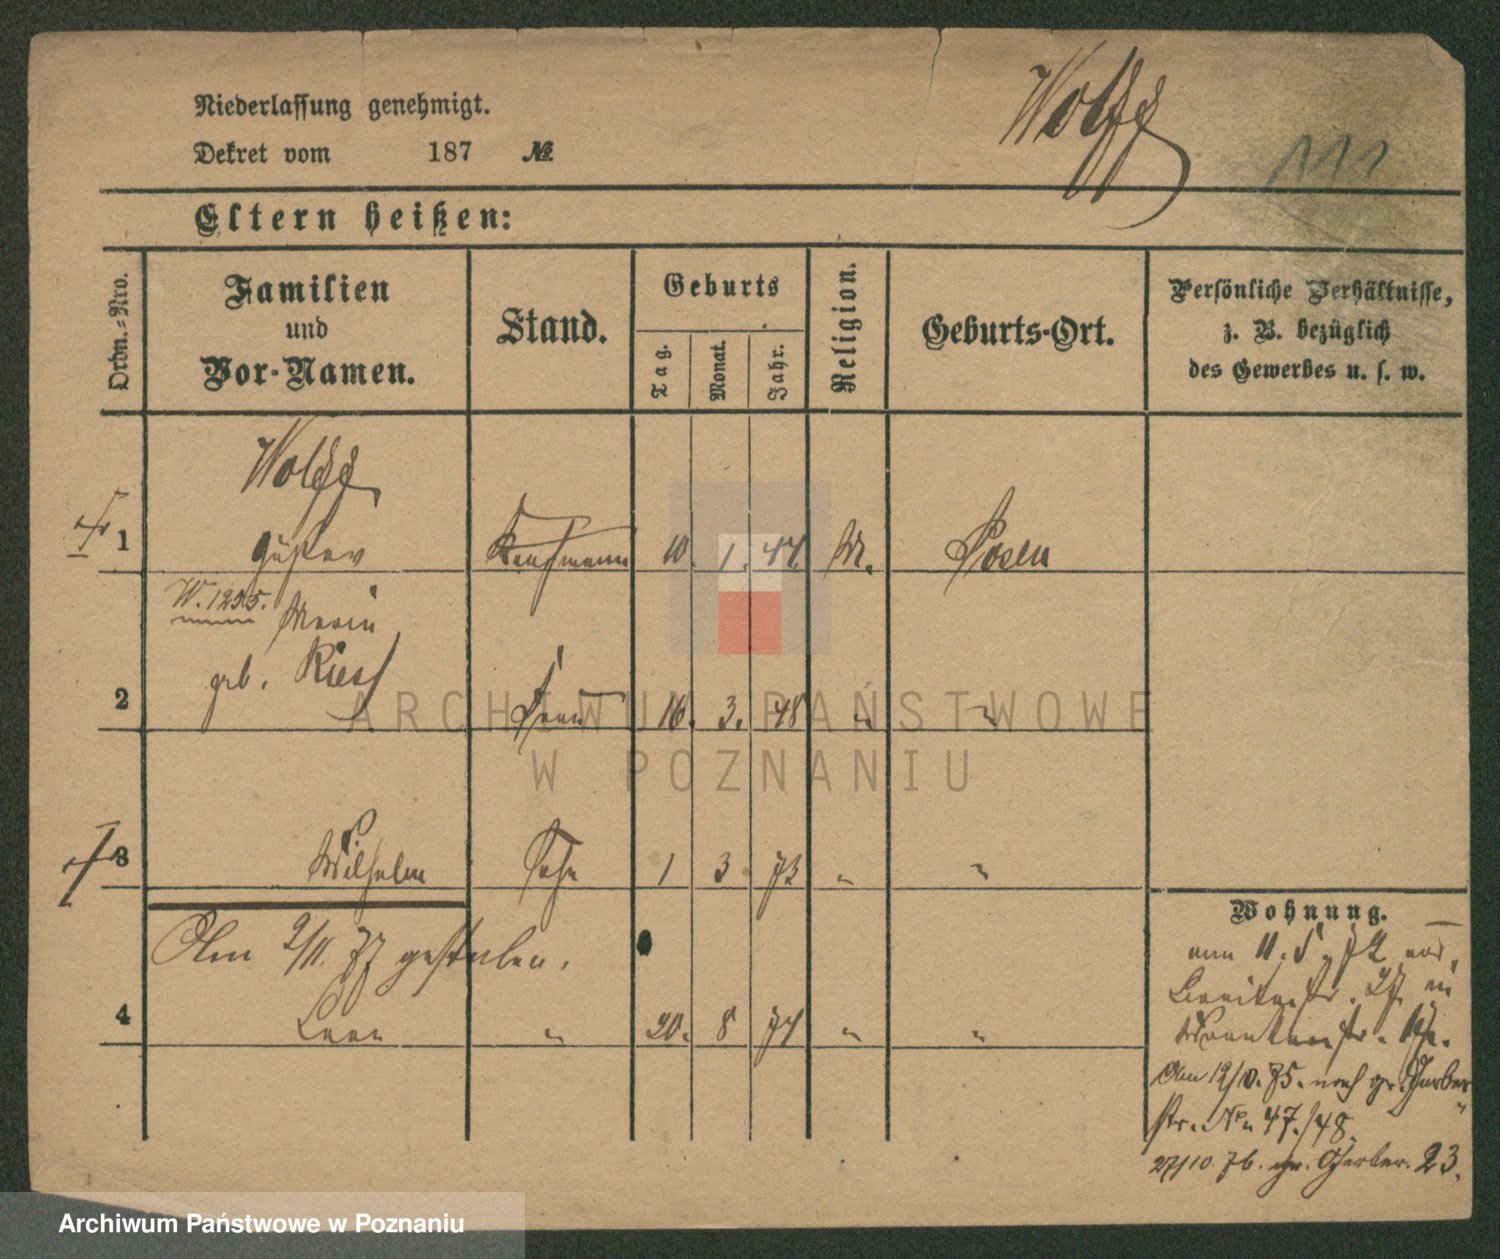 Niederlassung genehmigt.
Wolff
111
Dekret vom 187 №
Eltern heißen:
Ordn.-Nro.
Familien
und
Vor-Namen.
Stand.
Geburts
Tag.
Monat.
Jahr.
Religion.
Geburts-Ort.
Persönliche Verhältnisse,
z. B. bezüglich
des Gewerbes u. s. w.
Wolff
1 Gustav Kaufmann 10. 1. 47. M. Posen
W. 1255.
Marie
geb. Riess
2 Frau 16. 3. 48 " "
3 Wilhelm Sohn 1 3 73 " "
Wohnung.
Am 2/11. 77 gestorben.
4 " 20. 8 74 " "
Am 12/10. 75. nach gr. Gerber
str. No 47./48.
27/10. 76. gr. Gerber. 23.
ARCHIWUM PAŃSTWOWE
W POZNANIU
Archiwum Państwowe w Poznaniu